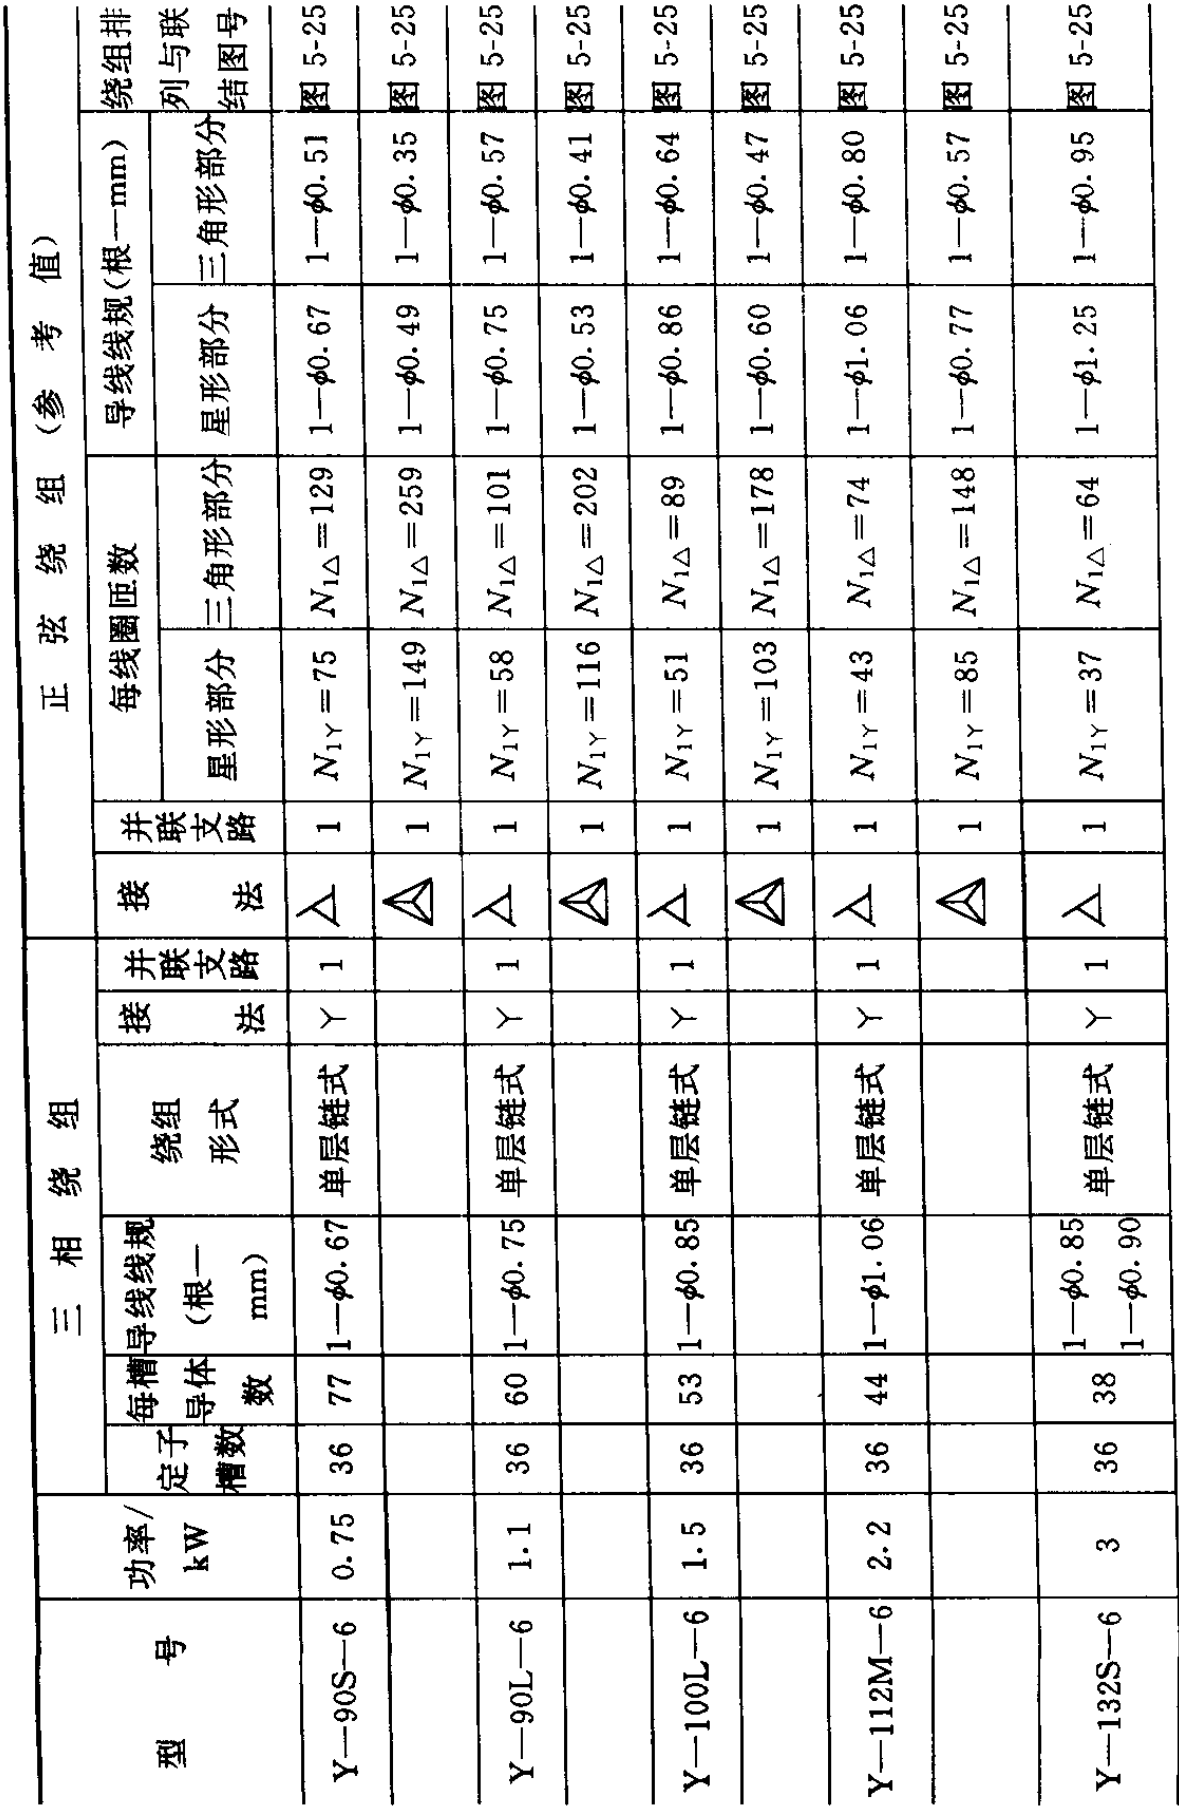 型 号
功率/
kW
三 相 绕 组
正 弦 绕 组 (参 考 值)
定子
槽数
每槽
导体
数
导线线规
(根—
mm)
绕组
形式
接 法
并联支路
接 法
并联支路
每线圈匝数
星形部分
三角形部分
导线线规(根—mm)
星形部分
三角形部分
绕组排
列与联
结图号
Y—90S—6 0.75 36 77 1—φ0.67 单层链式 Y 1 1 N1Y=75 N1△=129 1—φ0.67 1—φ0.51 图 5-25
1 N1Y=149 N1△=259 1—φ0.49 1—φ0.35 图 5-25
Y—90L—6 1.1 36 60 1—φ0.75 单层链式 Y 1 1 N1Y=58 N1△=101 1—φ0.75 1—φ0.57 图 5-25
1 N1Y=116 N1△=202 1—φ0.53 1—φ0.41 图 5-25
Y—100L—6 1.5 36 53 1—φ0.85 单层链式 Y 1 1 N1Y=51 N1△=89 1—φ0.86 1—φ0.64 图 5-25
1 N1Y=103 N1△=178 1—φ0.60 1—φ0.47 图 5-25
Y—112M—6 2.2 36 44 1—φ1.06 单层链式 Y 1 1 N1Y=43 N1△=74 1—φ1.06 1—φ0.80 图 5-25
1 N1Y=85 N1△=148 1—φ0.77 1—φ0.57 图 5-25
Y—132S—6 3 36 38 1—φ0.85 单层链式 Y 1 1 N1Y=37 N1△=64 1—φ1.25 1—φ0.95 图 5-25
1—φ0.90